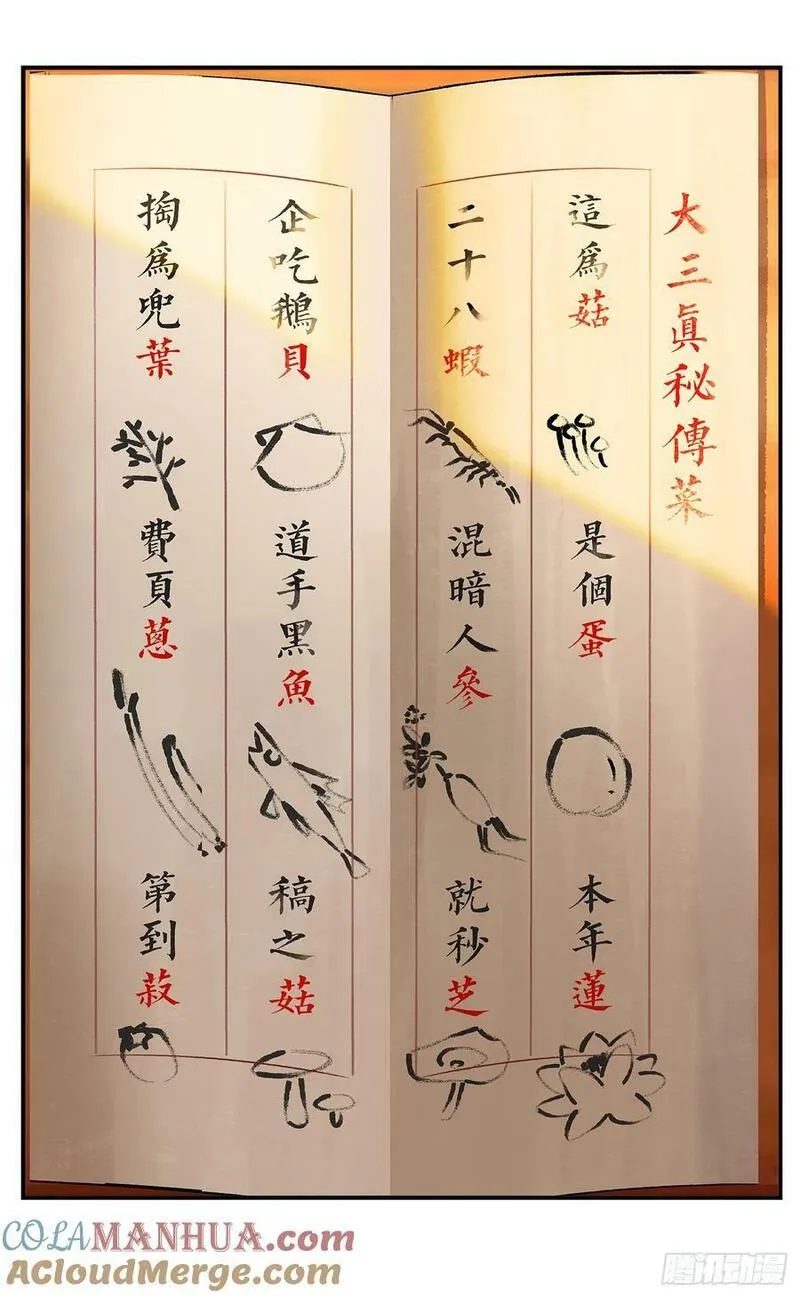 大三眞秘傳菜
這爲菇
是個蛋
本年蓮
二十八蝦
混暗人參
就秒芝
企吃鵝貝
道手黑魚
稿之菇
掏爲兜葉
費頁蔥
第到菽
COLAMANHUA.com
ACloudMerge.com
腾讯动漫